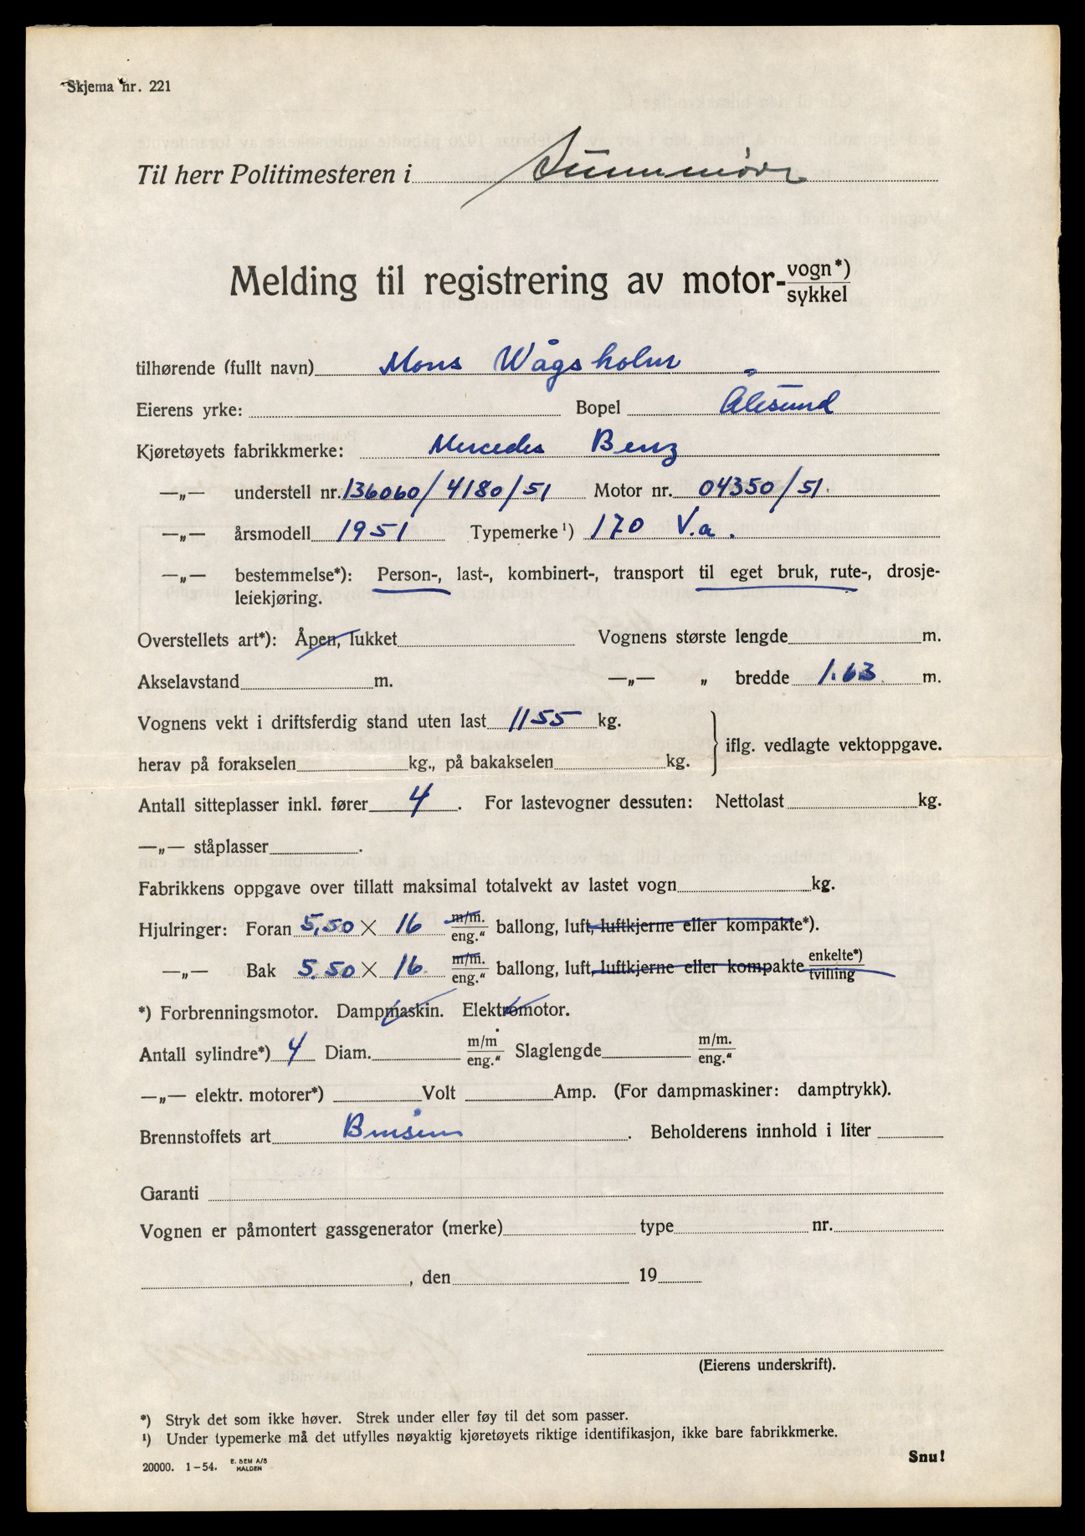 Skjema nr. 221
Til herr Politimesteren i Sunnmøre
Melding til registrering av motor- vogn*) sykkel
tilhørende (fullt navn) Mons Wågsholm
Eierens yrke: Bopel Ålesund
Kjøretøyets fabrikkmerke: Mercedes Benz
—„— understell nr. 136060/4180/51 Motor nr. 04350/51.
—„— årsmodell 1951 Typemerke¹) 170 V.a.
—„— bestemmelse*): Person-, last-, kombinert-, transport til eget bruk, rute-, drosje-
leiekjøring.
Overstellets art*): Åpen, lukket Vognens største lengde m.
Akselavstand m. —„— „ bredde 1.63 m.
Vognens vekt i driftsferdig stand uten last 1155 kg.
iflg. vedlagte vektoppgave.
herav på forakselen kg., på bakakselen kg.
Antall sitteplasser inkl. fører 4. For lastevogner dessuten: Nettolast kg.
—„— ståplasser .
Fabrikkens oppgave over tillatt maksimal totalvekt av lastet vogn kg.
Hjulringer: Foran 5,50 × 16 m/m. eng." ballong, luft, luftkjerne eller kompakte*).
—„— Bak 5.50 × 16. m/m. eng." ballong, luft, luftkjerne eller kompakte enkelte*) tvilling
*) Forbrenningsmotor. Dampmaskin. Elektromotor.
Antall sylindre*) 4 Diam. m/m eng." Slaglengde m/m. eng."
—„— elektr. motorer*) Volt Amp. (For dampmaskiner: damptrykk).
Brennstoffets art Bensin. Beholderens innhold i liter
Garanti
Vognen er påmontert gassgenerator (merke) type nr.
, den 19
(Eierens underskrift).
*) Stryk det som ikke høver. Strek under eller føy til det som passer.
¹) Under typemerke må det utfylles nøyaktig kjøretøyets riktige identifikasjon, ikke bare fabrikkmerke.
20000. 1-54. E. SEM A/S HALDEN
Snu!